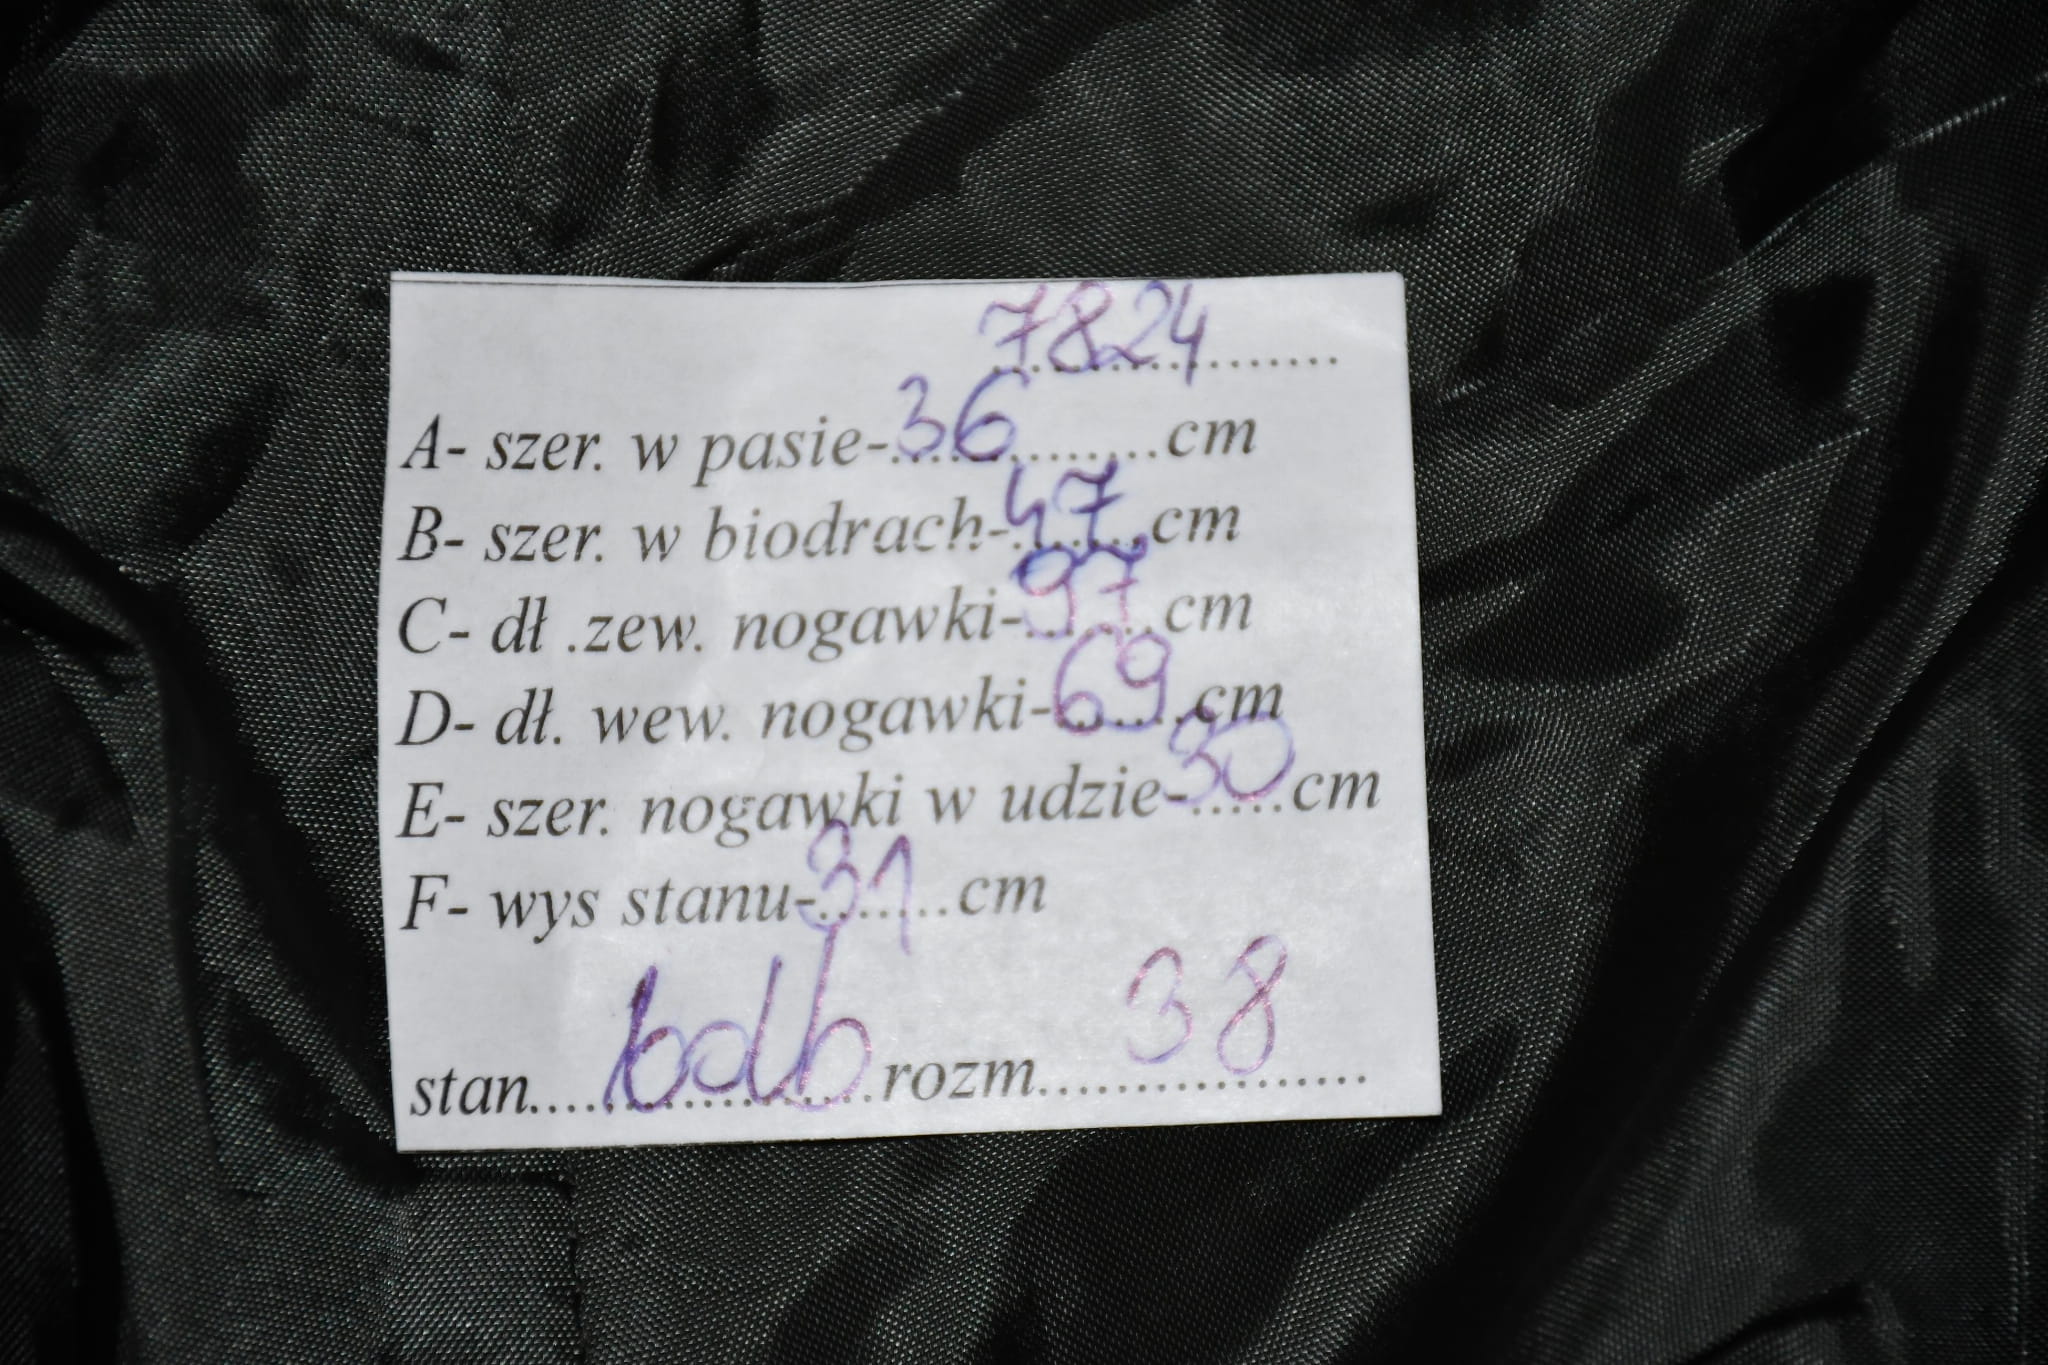 7824
A- szer. w pasie-36 cm
B- szer. w biodrach-47 cm
C- dł .zew. nogawki-97 cm
D- dł. wew. nogawki-69 cm
E- szer. nogawki w udzie-30 cm
F- wys stanu-31 cm
stan bdb rozm. 38